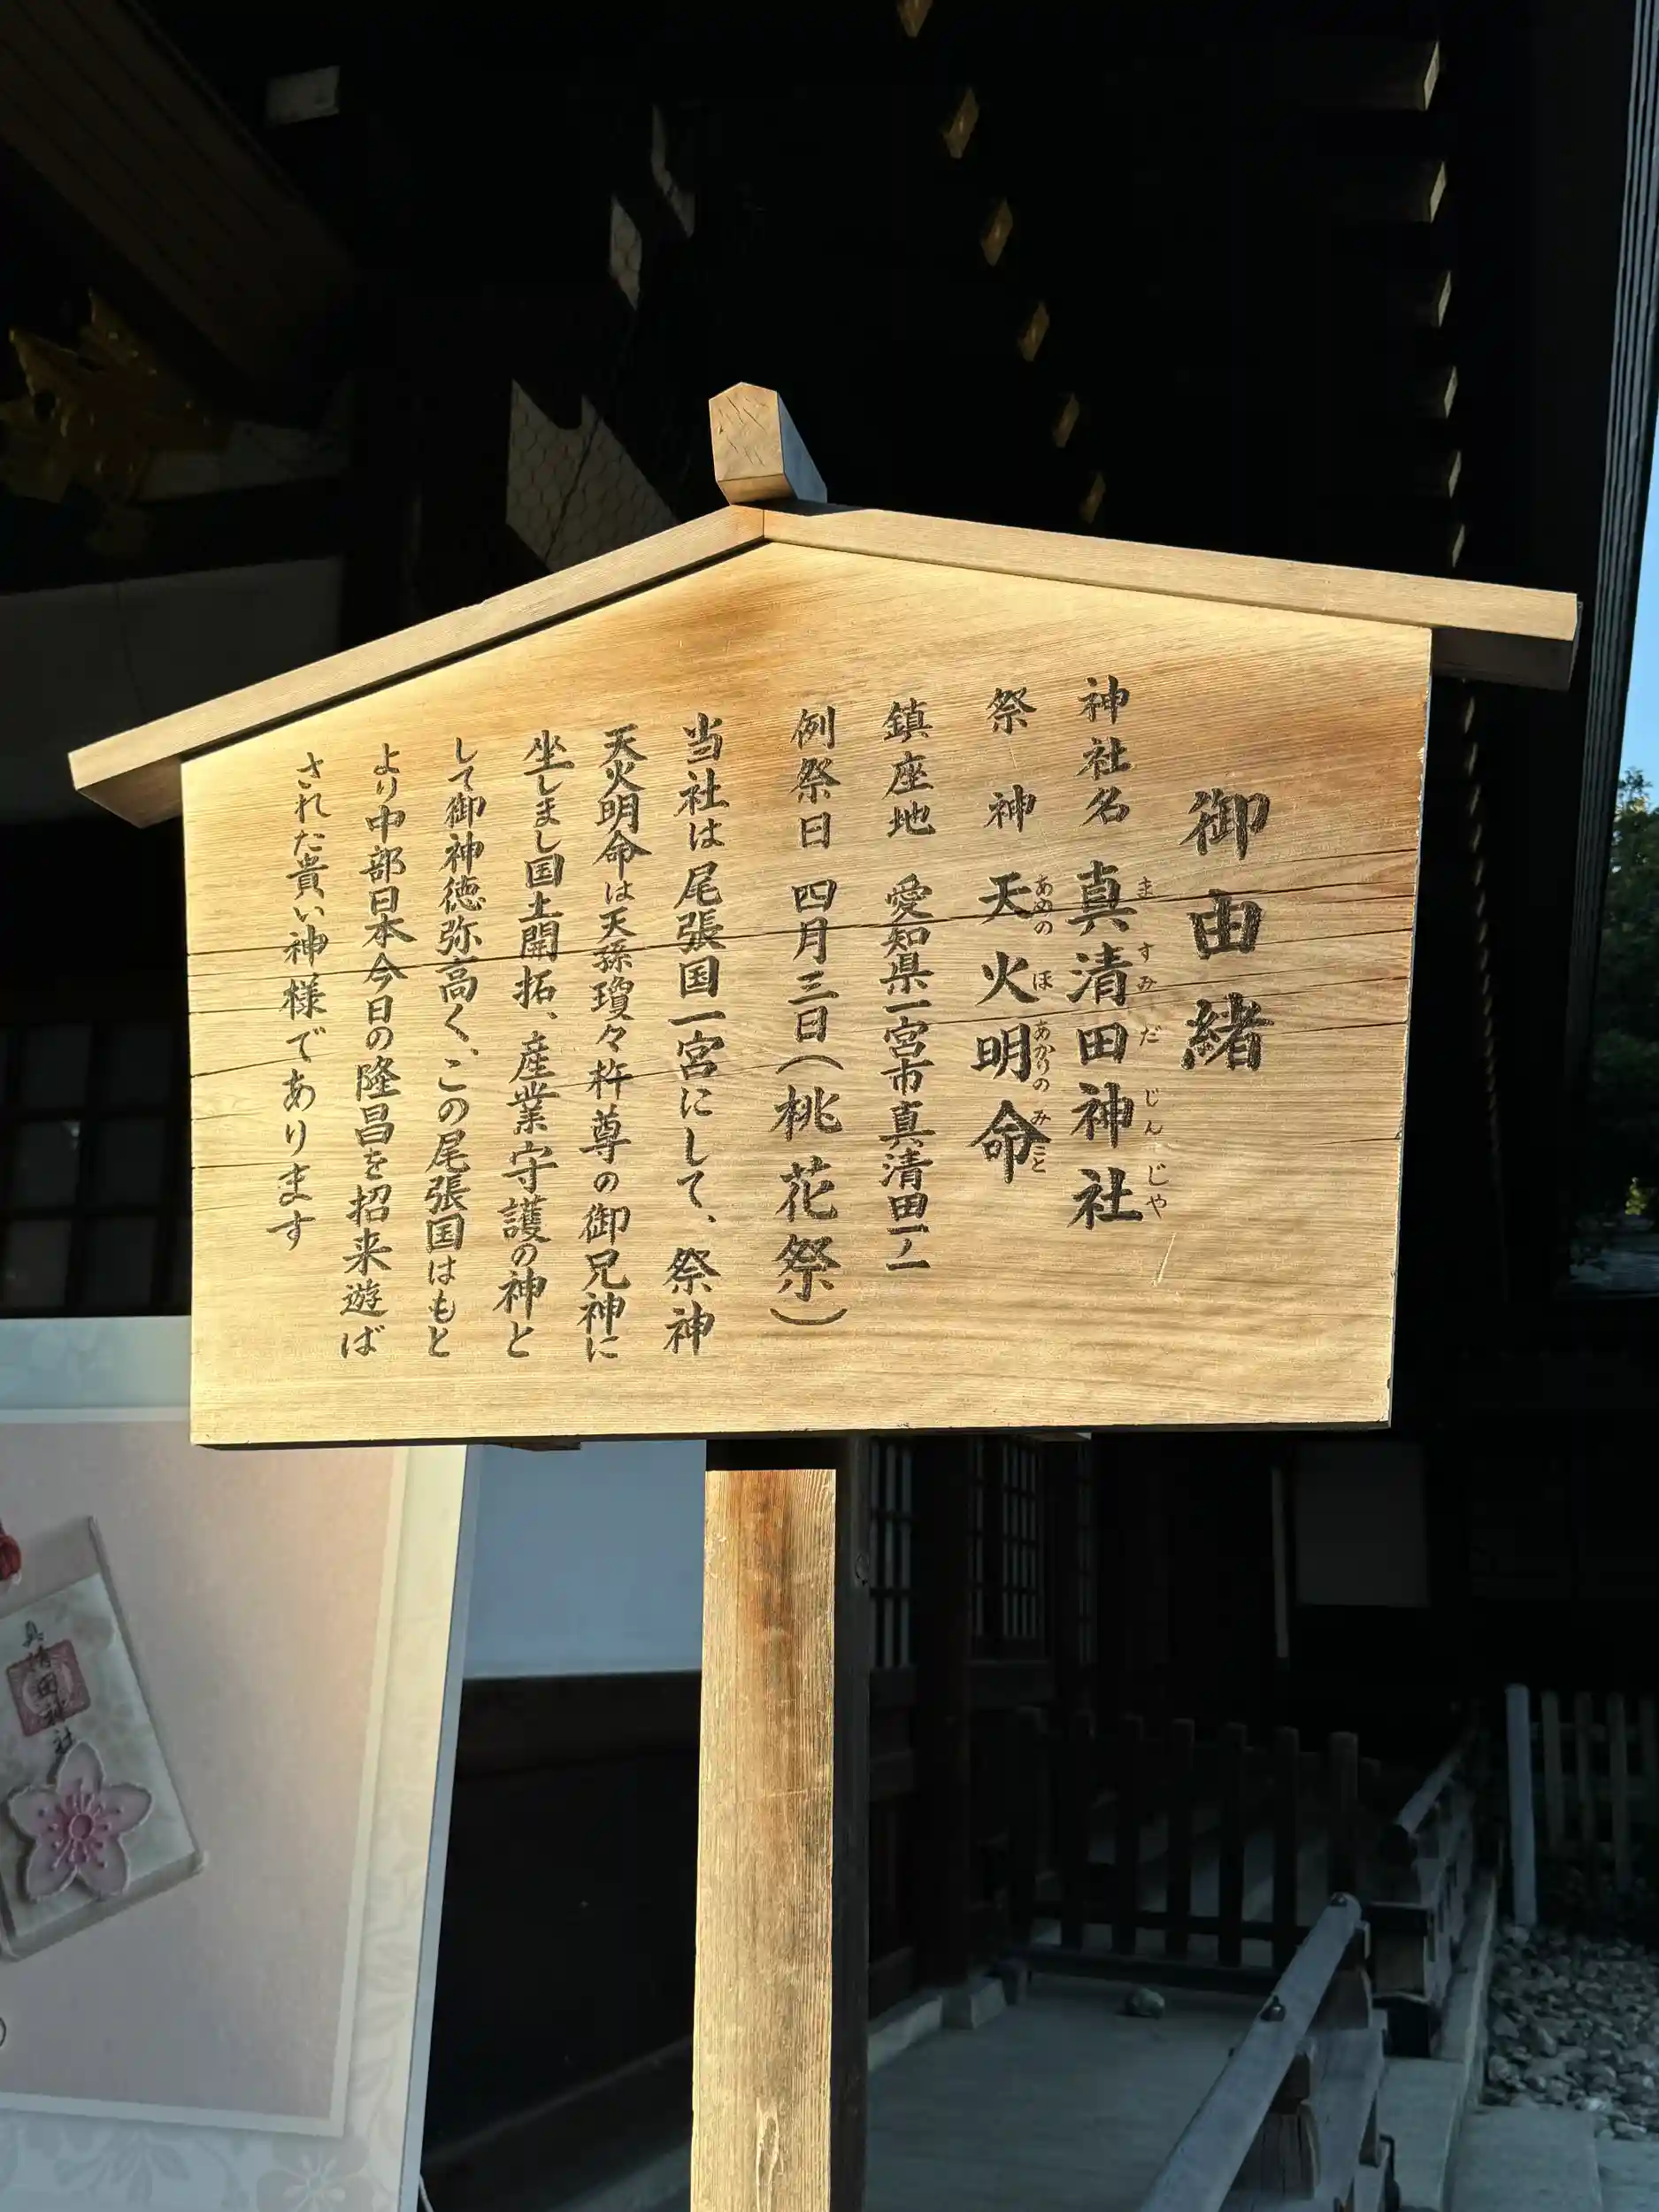 御由緒
神社名 真清田神社
ま すみ だ じん じゃ
祭神 天火明命
あめの ほ あかりの みこと
鎮座地 愛知県一宮市真清田一ノ二
例祭日 四月三日(桃花祭)
当社は尾張国一宮にして、祭神
天火明命は天孫瓊々杵尊の御兄神に
坐しまし国土開拓、産業守護の神と
して御神徳弥高く、この尾張国はもと
より中部日本今日の隆昌を招来遊ば
された貴い神様であります
真清田神社